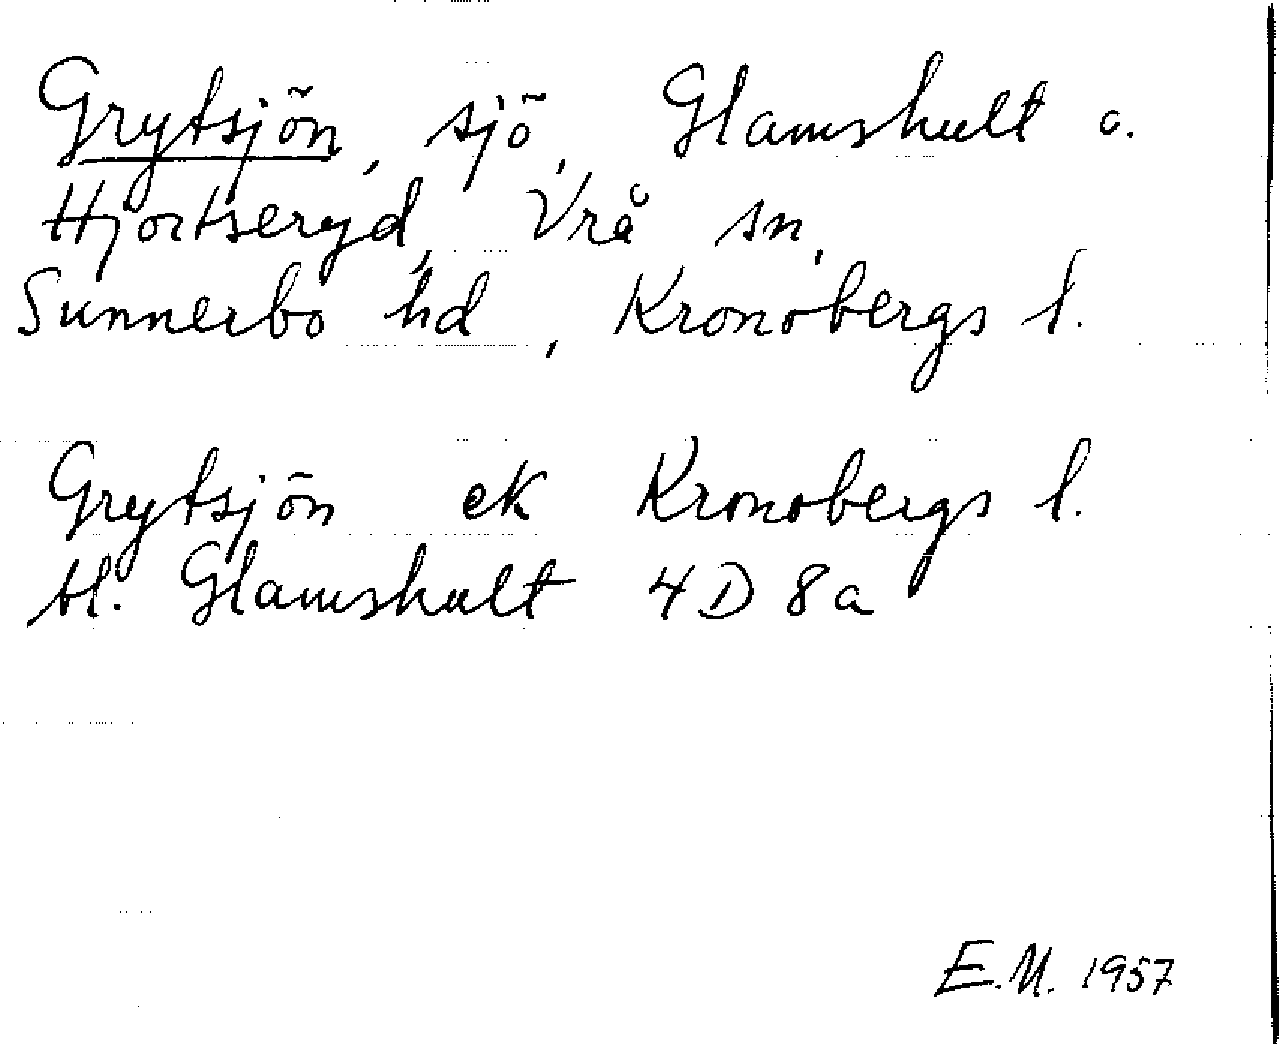 Grytsjön, sjö, Glamshult o.
Hjortseryd, Vrå sn,
Sunnerbo hd, Kronobergs l.
Grytsjön ek Kronobergs l.
tl. Glamshult 4D8a
E.M. 1957